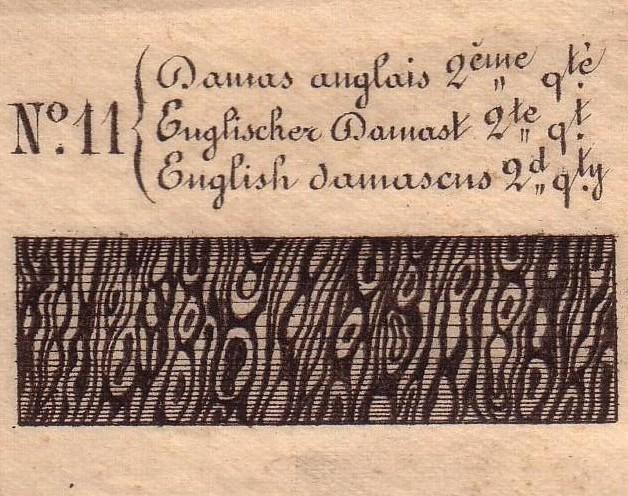 Nº. 11
Damas anglais 2ème qté
Englischer Damast 2te qt
English damascus 2d qty